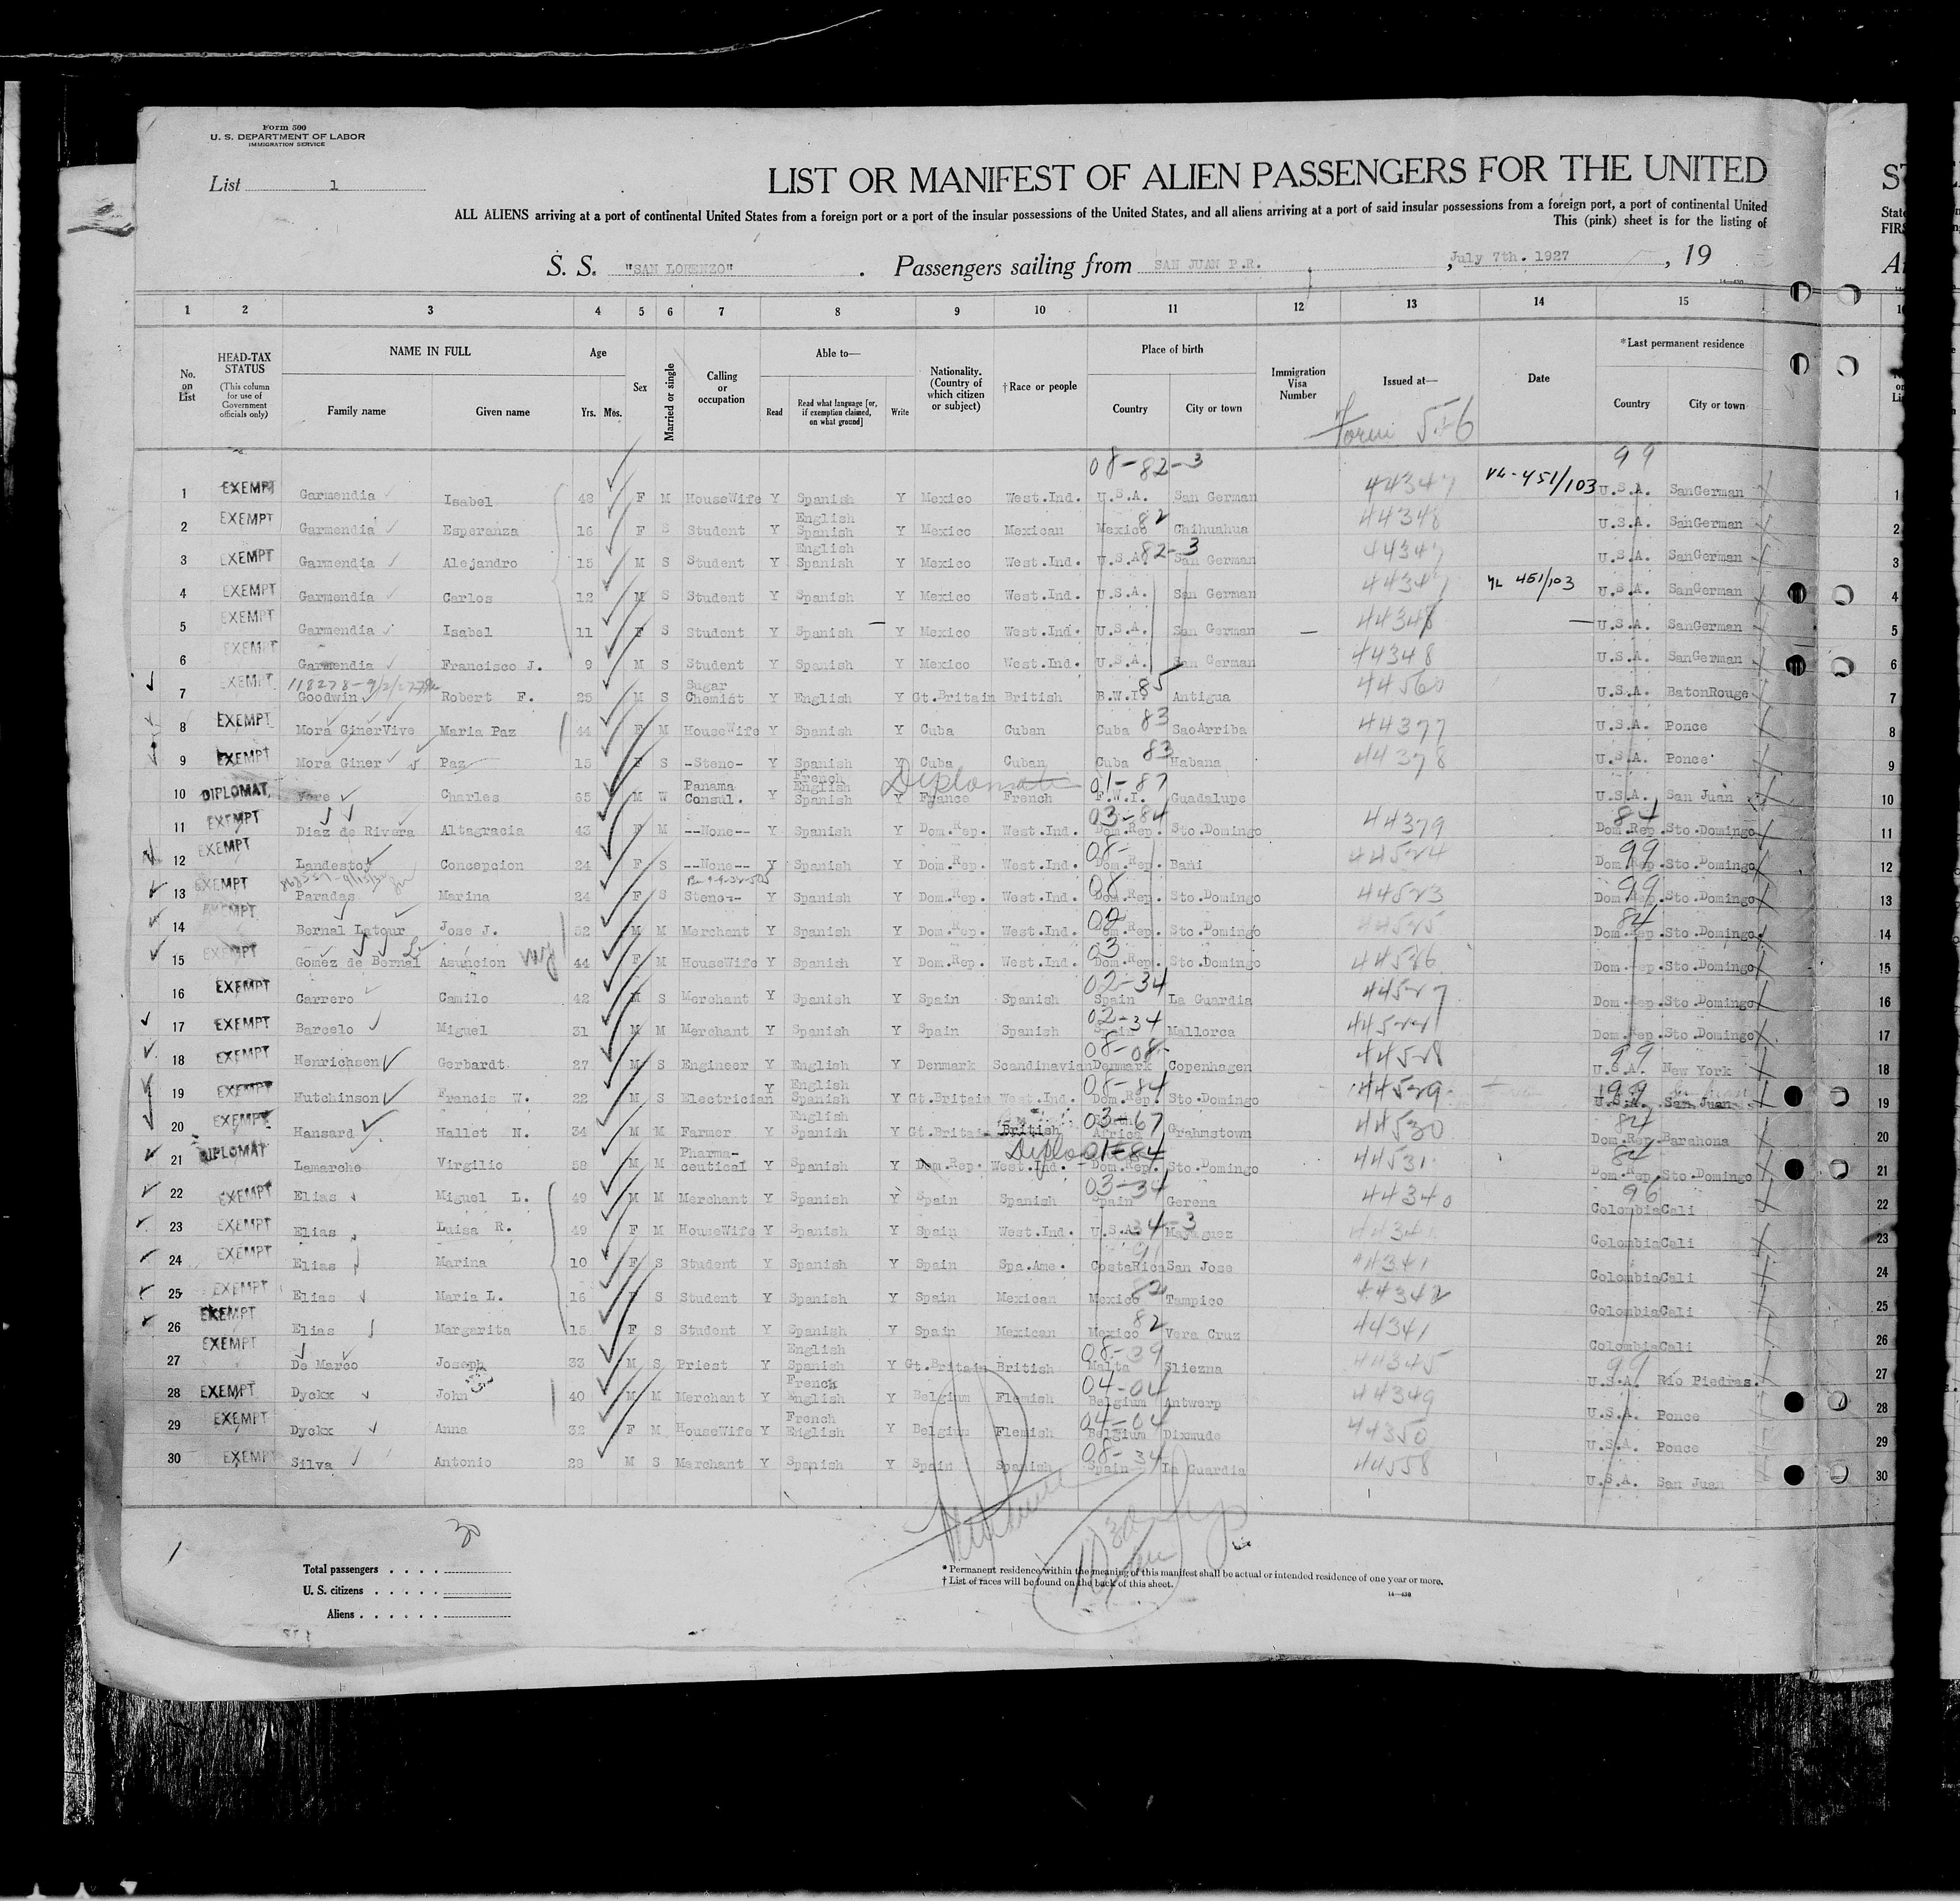 Form 500
U. S. DEPARTMENT OF LABOR
IMMIGRATION SERVICE
List 1
LIST OR MANIFEST OF ALIEN PASSENGERS FOR THE UNITED
ALL ALIENS arriving at a port of continental United States from a foreign port or a port of the insular possessions of the United States, and all aliens arriving at a port of said insular possessions from a foreign port, a port of continental United
This (pink) sheet is for the listing of
S. S. "SAN LORENZO" . Passengers sailing from SAN JUAN P.R. , July 7th. 1927 , 19
1 2 3 4 5 6 7 8 9 10 11 12 13 14 15
No. on List
HEAD-TAX STATUS
(This column for use of Government officials only)
NAME IN FULL
Family name Given name
Age
Yrs. Mos.
Sex
Married or single
Calling or occupation
Able to—
Read
Read what language [or, if exemption claimed, on what ground]
Write
Nationality. (Country of which citizen or subject)
†Race or people
Place of birth
Country City or town
Immigration Visa Number
Issued at—
Date
*Last permanent residence
Country City or town
Form 546
08-82-3 99
1 EXEMPT Garmendia Isabel 48 F M HouseWife Y Spanish Y Mexico West.Ind. U.S.A. San German 44347 VL-451/103 U.S.A. SanGerman 1
2 EXEMPT Garmendia Esperanza 16 F S Student Y English Spanish Y Mexico Mexican Mexico 82 Chihuahua 44348 U.S.A. SanGerman 2
3 EXEMPT Garmendia Alejandro 15 M S Student Y English Spanish Y Mexico West.Ind. U.S.A. 82-3 San German 44347 U.S.A. SanGerman 3
4 EXEMPT Garmendia Carlos 12 M S Student Y Spanish Y Mexico West.Ind. U.S.A. San German 44347 VL 451/103 U.S.A. SanGerman 4
5 EXEMPT Garmendia Isabel 11 F S Student Y Spanish Y Mexico West.Ind. U.S.A. San German 44348 U.S.A. SanGerman 5
6 EXEMPT Garmendia Francisco J. 9 M S Student Y Spanish Y Mexico West.Ind. U.S.A. San German 44348 U.S.A. SanGerman 6
7 EXEMPT Goodwin Robert F. 25 M S Sugar Chemist Y English Y Gt.Britain British B.W.I. 85 Antigua 44560 U.S.A. BatonRouge 7
8 EXEMPT Mora GinerVive Maria Paz 44 F M HouseWife Y Spanish Y Cuba Cuban Cuba 83 SaoArriba 44377 U.S.A. Ponce 8
9 EXEMPT Mora Giner Paz 15 F S -Steno- Y Spanish Y Cuba Cuban Cuba 83 Habana 44378 U.S.A. Ponce 9
10 DIPLOMAT. Vere Charles 65 M W Panama Consul. Y French English Spanish Y Diplomat France French F.W.I. 01-87 Guadalupe U.S.A. San Juan 10
11 EXEMPT Diaz de Rivera Altagracia 43 F M --None-- Y Spanish Y Dom.Rep. West.Ind. 03-84 Dom.Rep. Sto.Domingo 44379 84 Dom.Rep. Sto.Domingo 11
12 EXEMPT Landestoy Concepcion 24 F S --None-- Y Spanish Y Dom.Rep. West.Ind. 08- Dom.Rep. Bani 44524 99 Dom.Rep. Sto.Domingo 12
13 EXEMPT Paradas Marina 24 F S Steno-- Y Spanish Y Dom.Rep. West.Ind. 08 Dom.Rep. Sto.Domingo 44523 99 Dom.Rep. Sto.Domingo 13
14 EXEMPT Bernal Latour Jose J. 52 M M Merchant Y Spanish Y Dom.Rep. West.Ind. 02 Dom.Rep. Sto.Domingo 44525 84 Dom.Rep. Sto.Domingo 14
15 EXEMPT Gomez de Bernal Asuncion 44 F M HouseWife Y Spanish Y Dom.Rep. West.Ind. 03 Dom.Rep. Sto.Domingo 44526 Dom.Rep. Sto.Domingo 15
16 EXEMPT Carrero Camilo 42 M S Merchant Y Spanish Y Spain Spanish 02-34 Spain La Guardia 44527 Dom.Rep. Sto.Domingo 16
17 EXEMPT Barcelo Miguel 31 M M Merchant Y Spanish Y Spain Spanish 02-34 Spain Mallorca Dom.Rep. Sto.Domingo 17
18 EXEMPT Henrichsen Gerhardt 27 M S Engineer Y English Y Denmark Scandinavian 08-08- Denmark Copenhagen 44528 99 U.S.A. New York 18
19 EXEMPT Hutchinson Francis W. 22 M S Electrician Y English Spanish Y Gt.Britain West.Ind. 08-84 Dom.Rep. Sto.Domingo 44529 99 U.S.A. San Juan 19
20 EXEMPT Hansard Hallet N. 34 M M Farmer Y English Spanish Y Gt.Britain British 03-67 Africa Grahmstown 44530 84 Dom.Rep. Barahona 20
21 DIPLOMAT Lamarche Virgilio 58 M M Pharma-ceutical Y Spanish Y Dom.Rep. West.Ind. 01-84 Dom.Rep. Sto.Domingo 44531 84 Dom.Rep. Sto.Domingo 21
22 EXEMPT Elias Miguel L. 49 M M Merchant Y Spanish Y Spain Spanish 03-34 Spain Gerena 44340 96 Colombia Cali 22
23 EXEMPT Elias Luisa R. 49 F M HouseWife Y Spanish Y Spain West.Ind. U.S.A. 34-3 Mayaguez 44341 Colombia Cali 23
24 EXEMPT Elias Marina 10 F S Student Y Spanish Y Spain Spa.Ame. CostaRica San Jose 44341 Colombia Cali 24
25 EXEMPT Elias Maria L. 16 F S Student Y Spanish Y Spain Mexican Mexico 82 Tampico 44342 Colombia Cali 25
26 EXEMPT Elias Margarita 15 F S Student Y Spanish Y Spain Mexican Mexico 82 Vera Cruz 44341 Colombia Cali 26
27 EXEMPT De Marco Joseph 33 M S Priest Y English Spanish Y Gt.Britain British 08-39 Malta Sliezna 44345 99 U.S.A. Rio Piedras. 27
28 EXEMPT Dyckx John 40 M M Merchant Y French English Y Belgium Flemish 04-04 Belgium Antwerp 44349 U.S.A. Ponce 28
29 EXEMPT Dyckx Anna 32 F M HouseWife Y French English Y Belgium Flemish 04-04 Belgium Dixmude 44350 U.S.A. Ponce 29
30 EXEMPT Silva Antonio 28 M S Merchant Y Spanish Y Spain Spanish 08-34 Spain La Guardia 44558 U.S.A. San Juan 30
30
Total passengers . . . .
U. S. citizens . . . . .
Aliens . . . . . .
* Permanent residence within the meaning of this manifest shall be actual or intended residence of one year or more.
† List of races will be found on the back of this sheet.